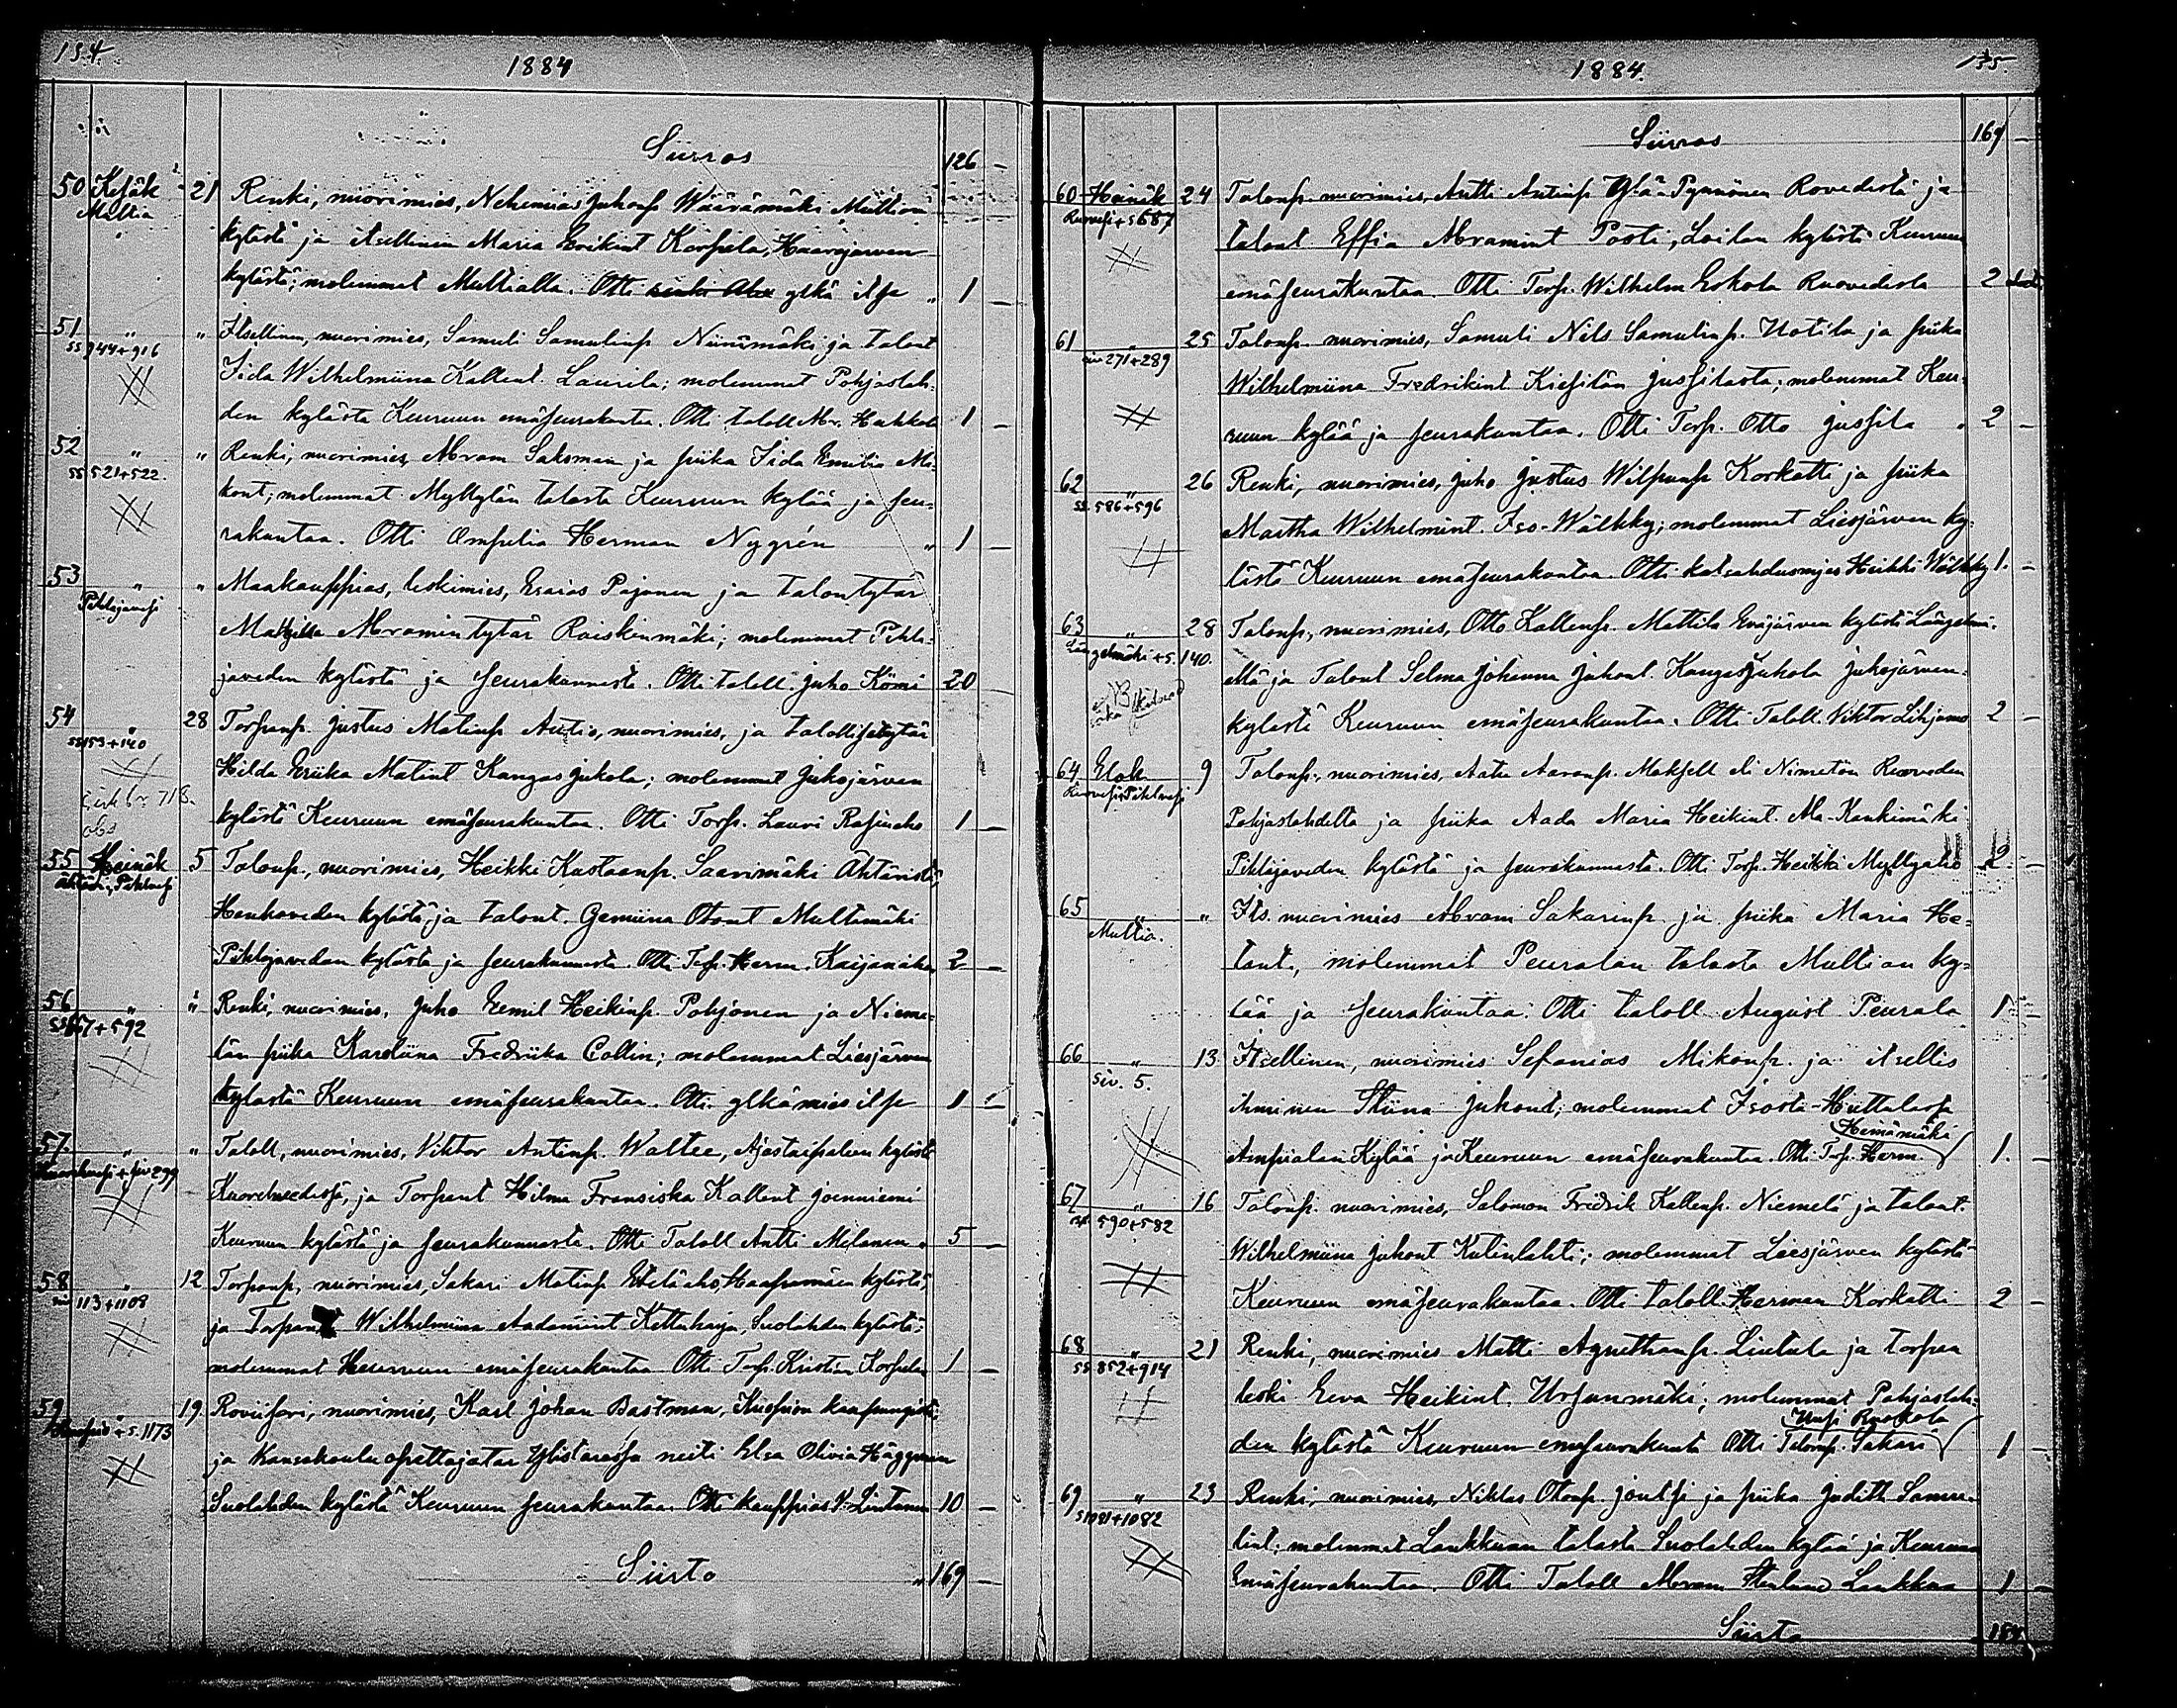 154.
1884
Siirros 126 –
50 Kesäk 21 Renki, nuorimies, Nehemias Juhonp Wäärämäki Multian
Multia kylästä ja itsellinen Maria Erikint Korpela, Haarajärven
kylästä; molemmat Multialla. Otti ylkä itse " 1 –
51 " " Itsellinen, nuorimies, Samuli Samulinp Niinimäki ja talont
ss 944+916 Iida Wilhelmiina Kallent. Laurila; molemmat Pohjaslah-
den kylästä Keuruun emäseurakuntaa. Otti taloll. 1 –
52 " " Renki, nuorimies, Abram Saksman ja piika Iida Emilia Mi-
ss 521+522. kont; molemmat Myllylän talosta Keuruun kylää ja seu-
rakuntaa. Otti Ompelia Herman Nygrén " 1 –
53 " " Maakauppias, leskimies, Esaias Pajanen ja talontytär
Pihlajavesi Abramintytär Raiskinmäki; molemmat Pihla-
javeden kylästä ja seurakunnasta. Otti taloll. Juho Kömi 20
54 " 28 Torpanp. Justus Matinp Autio, nuorimies, ja talollisetytär
ss 153+140 Hilda Eriika Matint Kangas Jukola; molemmat Jukojärven
kylästä Keuruun emäseurakuntaa. Otti Torp. Lauri 1 –
obs
55 Heinäk 5 Talonp., nuorimies, Heikki Kustaanp. Saarimäki Ähtäristä,
Ähtäri, Pihlavesi
kylästä, ja talont. Gemiina Otont Multamäki
Pihlajaveden kylästä ja seurakunnasta. Otti Torp. Herm. 2 –
56 " " Renki, nuorimies, Juho Eemil Heikinp. Pohjonen ja Nieme-
+592 län piika Karoliina Fredriika Collin; molemmat Liesjärven
kylästä Keuruun emäseurakuntaa. Otti ylkämies itse 1 –
57. " " Taloll., nuorimies, Viktor Antinp. Waltee, kylästä
siv 299
ja Torpant Hilma Fransiska Kallent Joenniemi
Keuruun kylästä ja seurakunnasta. Otti Taloll Antti Milanen " 5 –
58 " 12 Torpanp, nuorimies, Sakari Matinp Etelaaho, Haapamäen kylästä,
siv 113+1108 ja Torpant Wilhelmiina Aadamint Kettuharju, Suolahden kylästä;
molemmat Keuruun emäseurakuntaa Otti Torp. Kristian Korpela 1 –
59 " 19 nuorimies, Karl Johan Bastman, Kuopion kaupungista
Kuopio + s. 1173 ja Kansakoulu opettajatar Ylistarossa neiti Elsa Olivia Häggman
Suolahden kylästä Keuruun seurakuntaa. Otti kauppias Lintunen 10 –
Siirto " 169 –
1884.
155.
Siirros 169 –
60 Heinäk 24 Talonp. nuorimies, Antti Antinp Ylä-Pynnönen Rovedestä ja
Ruovesi + s 687 talont Effia Abramint Posti, Loilan kylästä Keuruun
emäseurakuntaa. Otti Torp. Wilhelm Eskola Ruovedesla 2
61 " 25 Talonp. nuorimies, Samuli Nils Samulinp. Uotila ja piika
siv 271+289 Wilhelmiina Fredrikint Kiesilän Jussilasta; molemmat Keu-
ruun kylää ja seurakuntaa. Otti Torp. Otto Jussila " 2 –
62 " 26 Renki, nuorimies, Juho Justus Wilpunp Korkatti ja piika
ss. 586+596 Martha Wilhelmint. Iso-Wälkky; molemmat Liesjärven ky-
lästä Keuruun emäseurakuntaa. Otti katsahdusmies Heikki Wälkky 1. –
63 " 28 Talonp., nuorimies, Otto Kallenp. Mattila Eväjärven kylästä Längelmä-
Längelmäki + s. 140. ellä ja Talont Selma Johanna Juhont. Kangasjukola Jukojärven
kylästä Keuruun emäseurakuntaa. Otti Taloll. Viktor Lihjamo 2 –
64 Elok. 9 Talonp., nuorimies, Aatu Aaronp. Maksell eli Nimetön Ruoveden
Ruovesi, Pihlavesi Pohjaslahdelta ja piika Aada Maria Heikint. Ala-Kankimäki
Pihlajaveden kylästä ja seurakunnasta. Otti Torp. Heikki Myllyaho 2 –
65 " " Its. nuorimies Abram Sakarinp. ja piika Maria He-
Multia. tant., molemmat Peuralan talosta Multian ky-
lää ja seurakuntaa. Otti taloll August Peurala 1 –
66 " 13. Itsellinen, nuorimies Sefanias Mikonp. ja itsellis
siv. 5. ihminen Stiina Juhont; molemmat Isosta-Huttulasta
Heinämäki
Ampialan Kylää ja Keuruun emäseurakuntaa. Otti Torp. Herm. 1. –
67 " 16 Talonp. nuorimies, Salomon Fredrik Kallenp. Niemelä ja talont.
590+582 Wilhelmiina Juhont Kutinlahti; molemmat Liesjärven kylästä
Keuruun emäseurakuntaa. Otti taloll. Herman Korkatti 2 –
68 " 21 Renki, nuorimies Matti Agnethanp. Liukula ja torpan
ss 852+914 leski Eeva Heikint. Urjanmäki; molemmat Pohjaslah-
Uusi Ruokola
den kylästä Keuruun emäseurakunta Otti Talonp. Sakari 1 –
69 " 23 Renki, nuorimies, Niklas Otonp. Joutsi ja piika Judith Samu-
s 1081+1082 lint; molemmat Laukkuan talosta Suolahden kylää ja Keuruun
Emäseurakuntaa. Otti Taloll Abram Laukkaa 1 –
Siirto